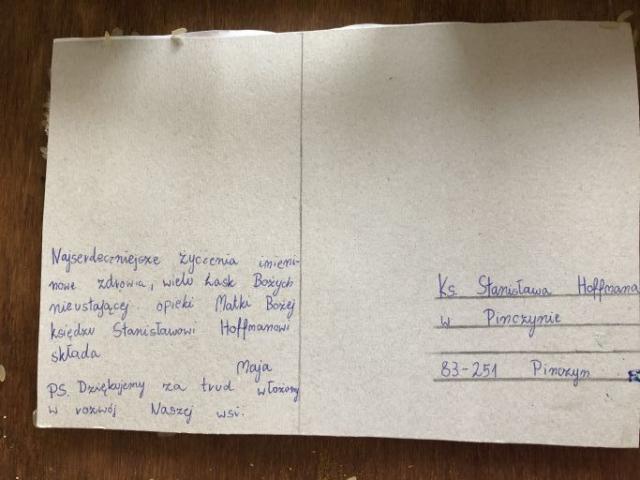 Najserdeczniejsze życzenia imieni-
nowe zdrowia, wielu Łask Bożych
nieustającej opieki Matki Bożej
księdzu Stanisławowi Hoffmanowi
składa
Maja
PS. Dziękujemy za trud włożony
w rozwój Naszej wsi.
Ks. Stanisława Hoffmana
w Pinczynie
83-251 Pinczyn